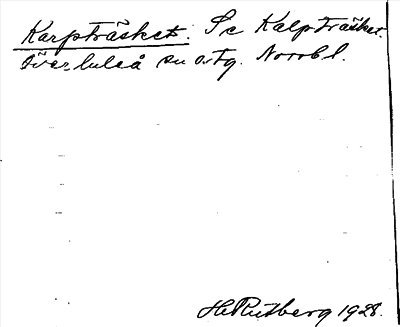 Karpträsket. Se Kalpträsket.
Överluleå sn o. tg. Norrb l.
H Rutberg 1928.